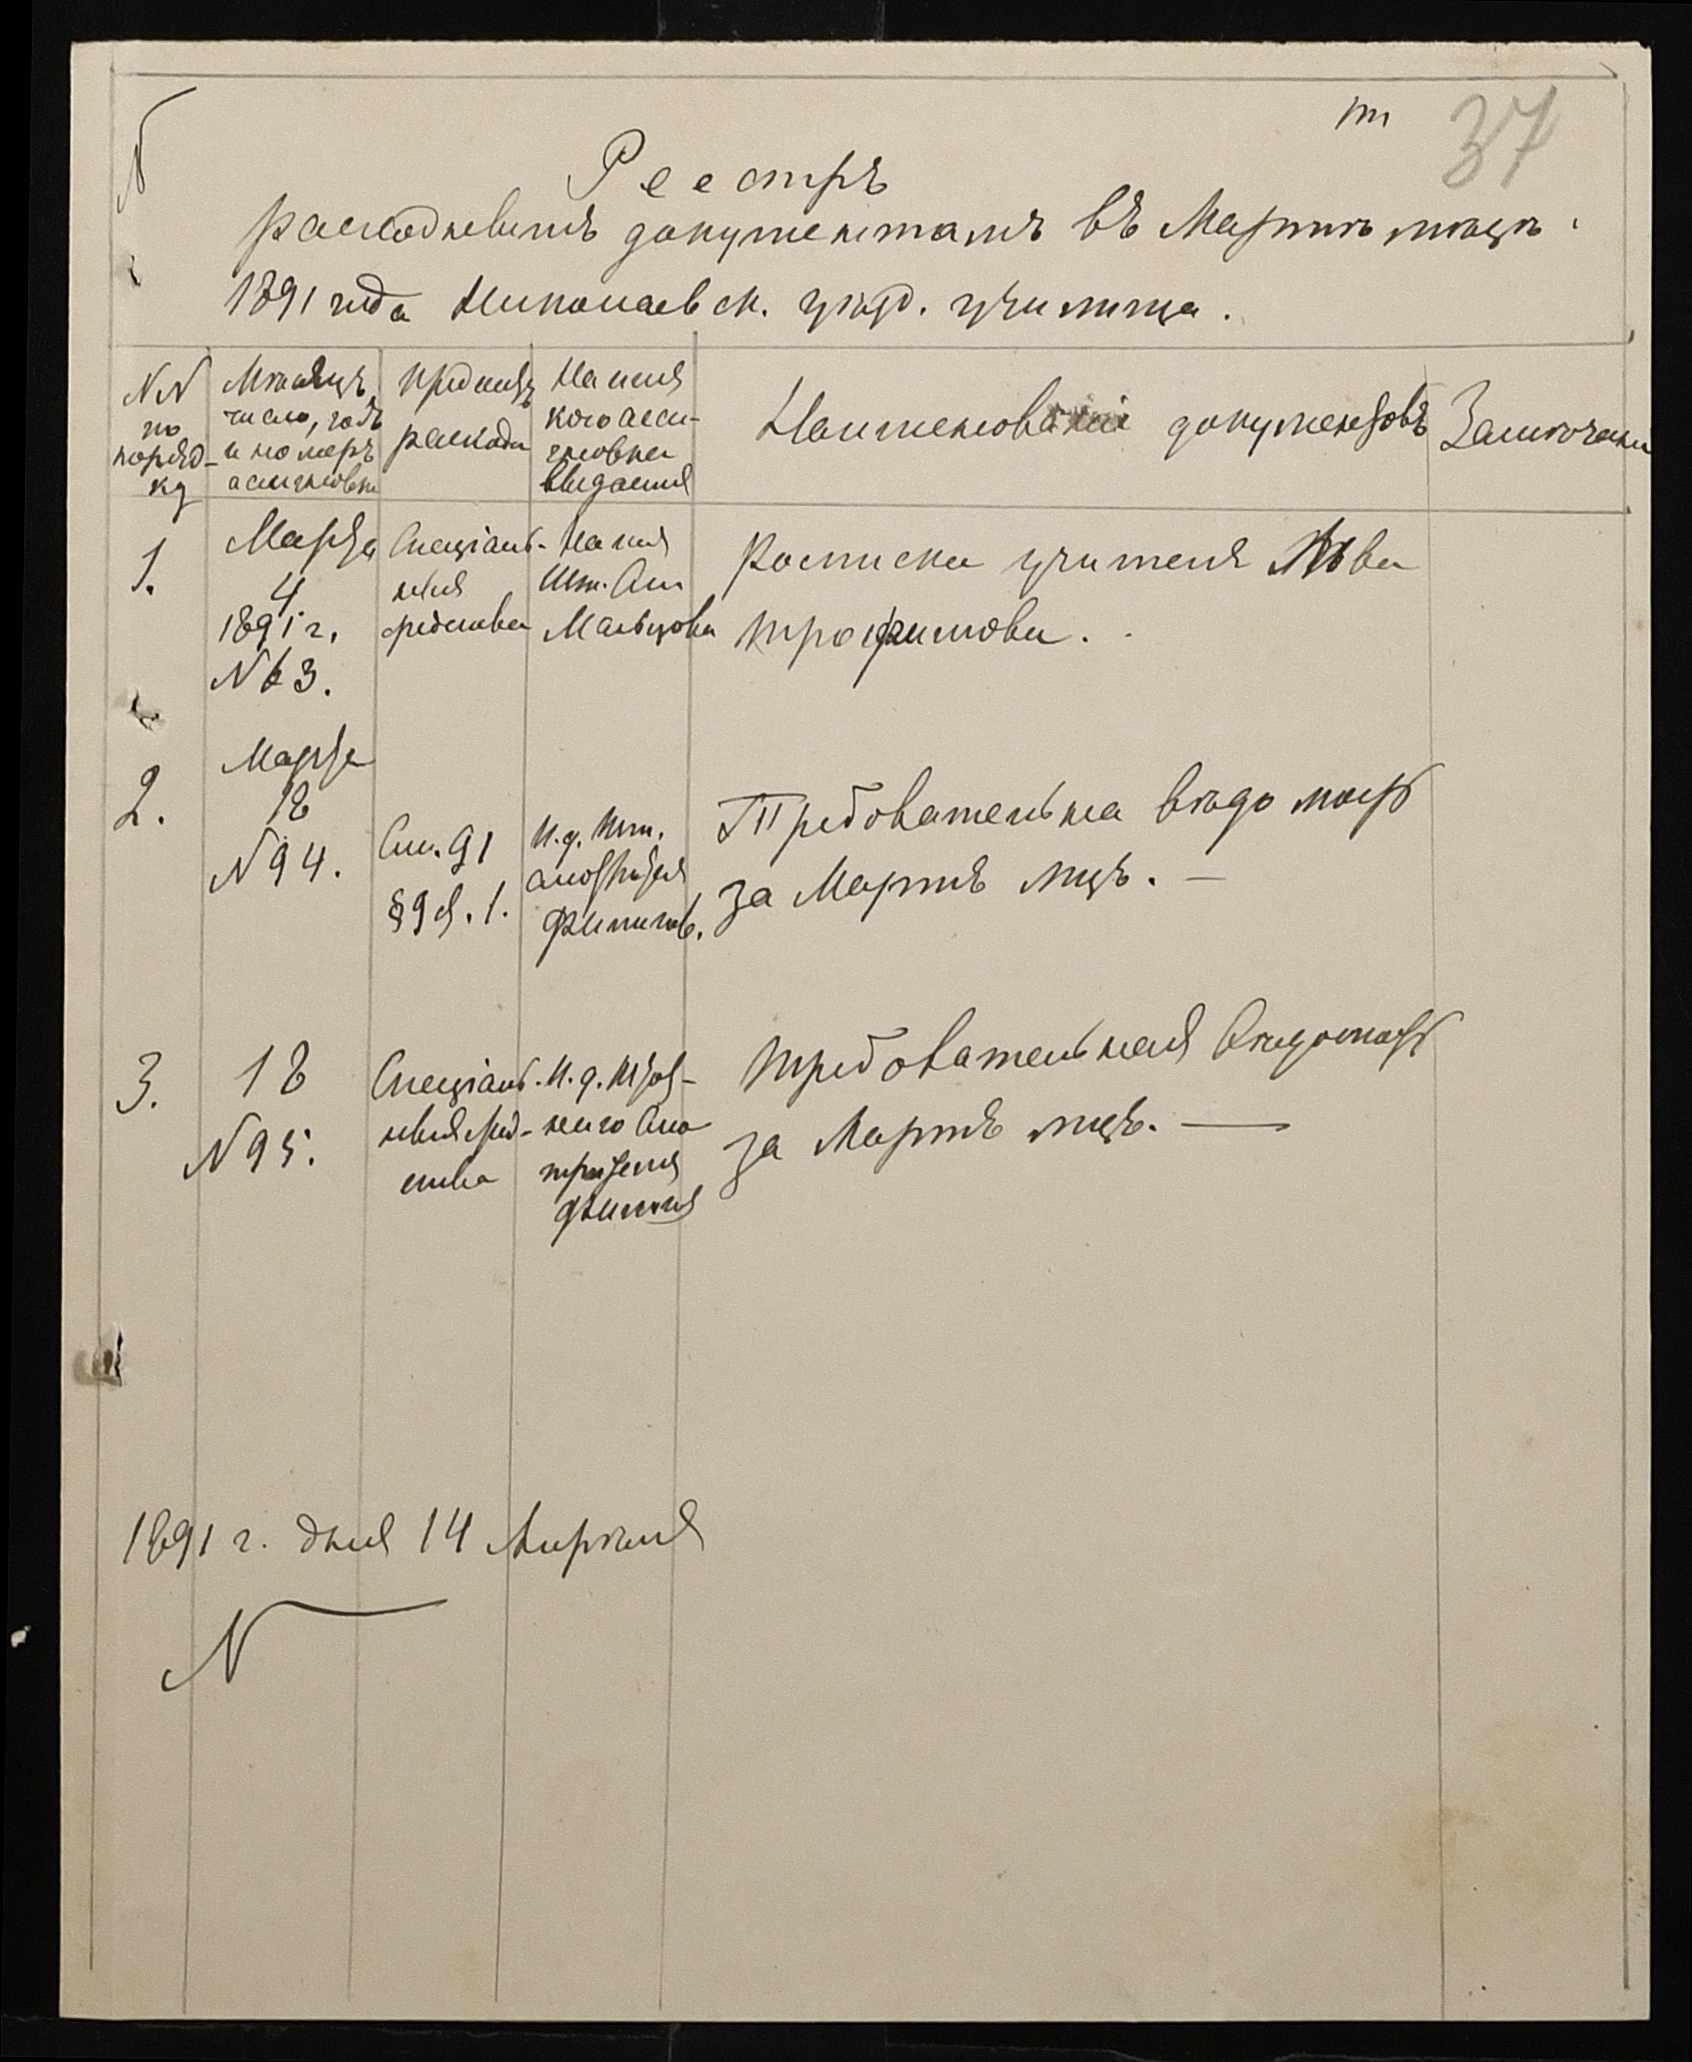 37
Реестръ
расходнымъ документамъ въ Мартѣ мѣсяцѣ
1891 года Николаевск. уѣзд. училища.
NN
по
поряд-
ку
Мѣсяцъ,
число, годъ
и номеръ
ассигновки
Предметъ
расхода
На имя
кого асси-
гновка
выдана
Наименованіе документовъ
Замѣчаніе
1.
Марта
4
1891 г.
N 63.
Спеціаль-
ныя
средства
На имя
Шт. См.
Мальцова
Росписка учителя Льва
Трофимова.
2.
Марта
18
N 94.
См. 91
§ 9 ст. 1.
И. д. Шт.
смотрителя
Филипов.
Требовательна вѣдомость
за Мартъ мцъ. —
3.
18
N 95.
Спеціаль-
ныя сред-
ства
И. д. Штат-
наго Смо
трителя
Требовательная Вѣдомость
за Мартъ мцъ. —
1891 г. дня 14 Апрѣля
N